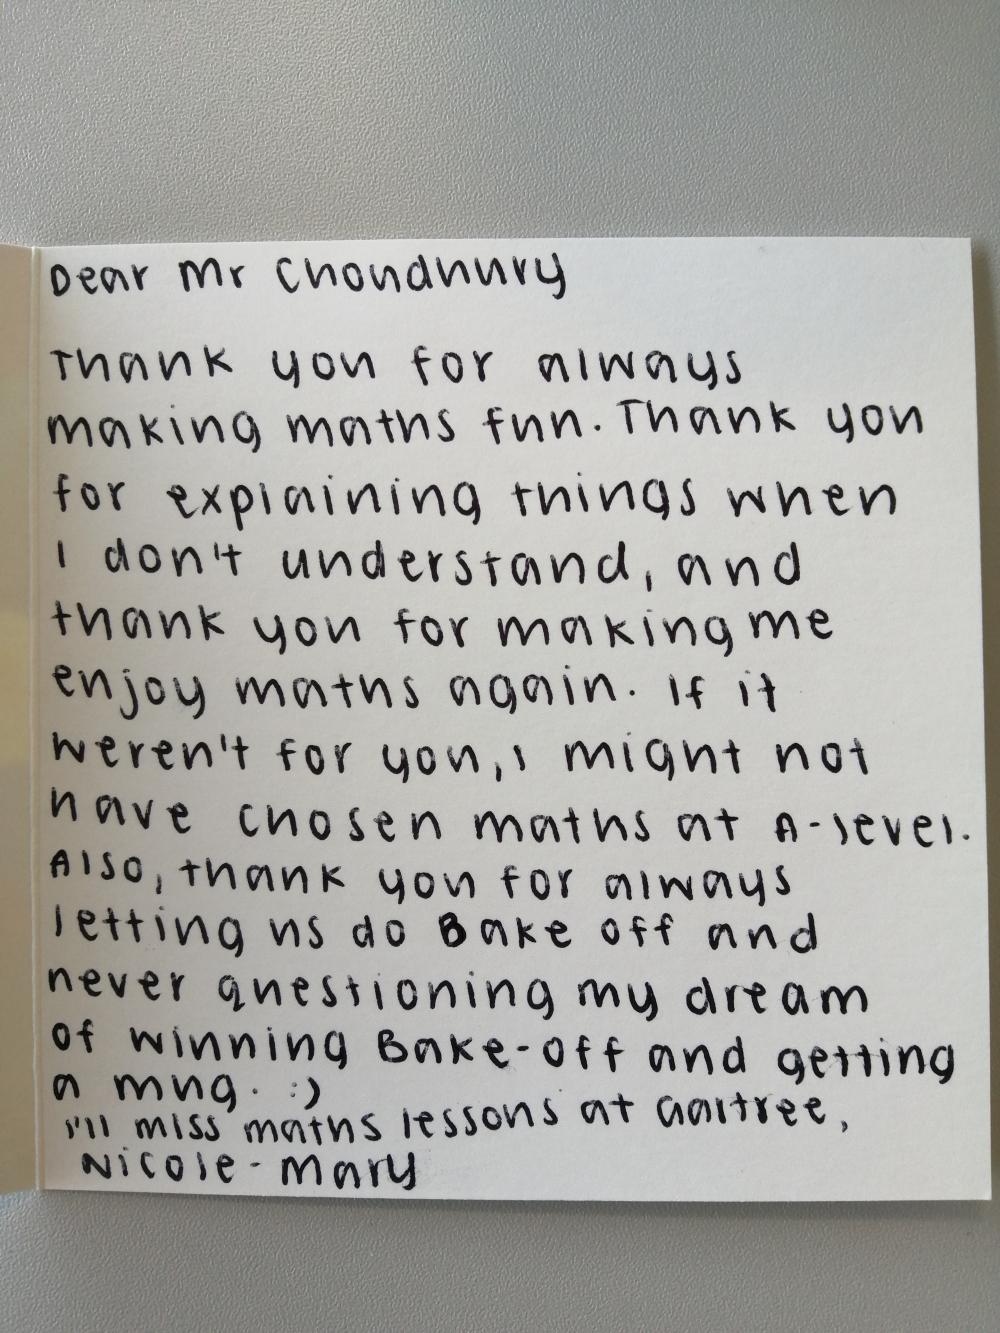 Dear Mr Choudhury
Thank you for always
making maths fun. Thank you
for explaining things when
I don't understand, and
thank you for making me
enjoy maths again. If it
weren't for you, I might not
have chosen maths at A-level.
Also, thank you for always
letting us do Bake off and
never questioning my dream
of winning Bake-off and getting
a mug. :)
I'll miss maths lessons at Gartree,
Nicole-Mary